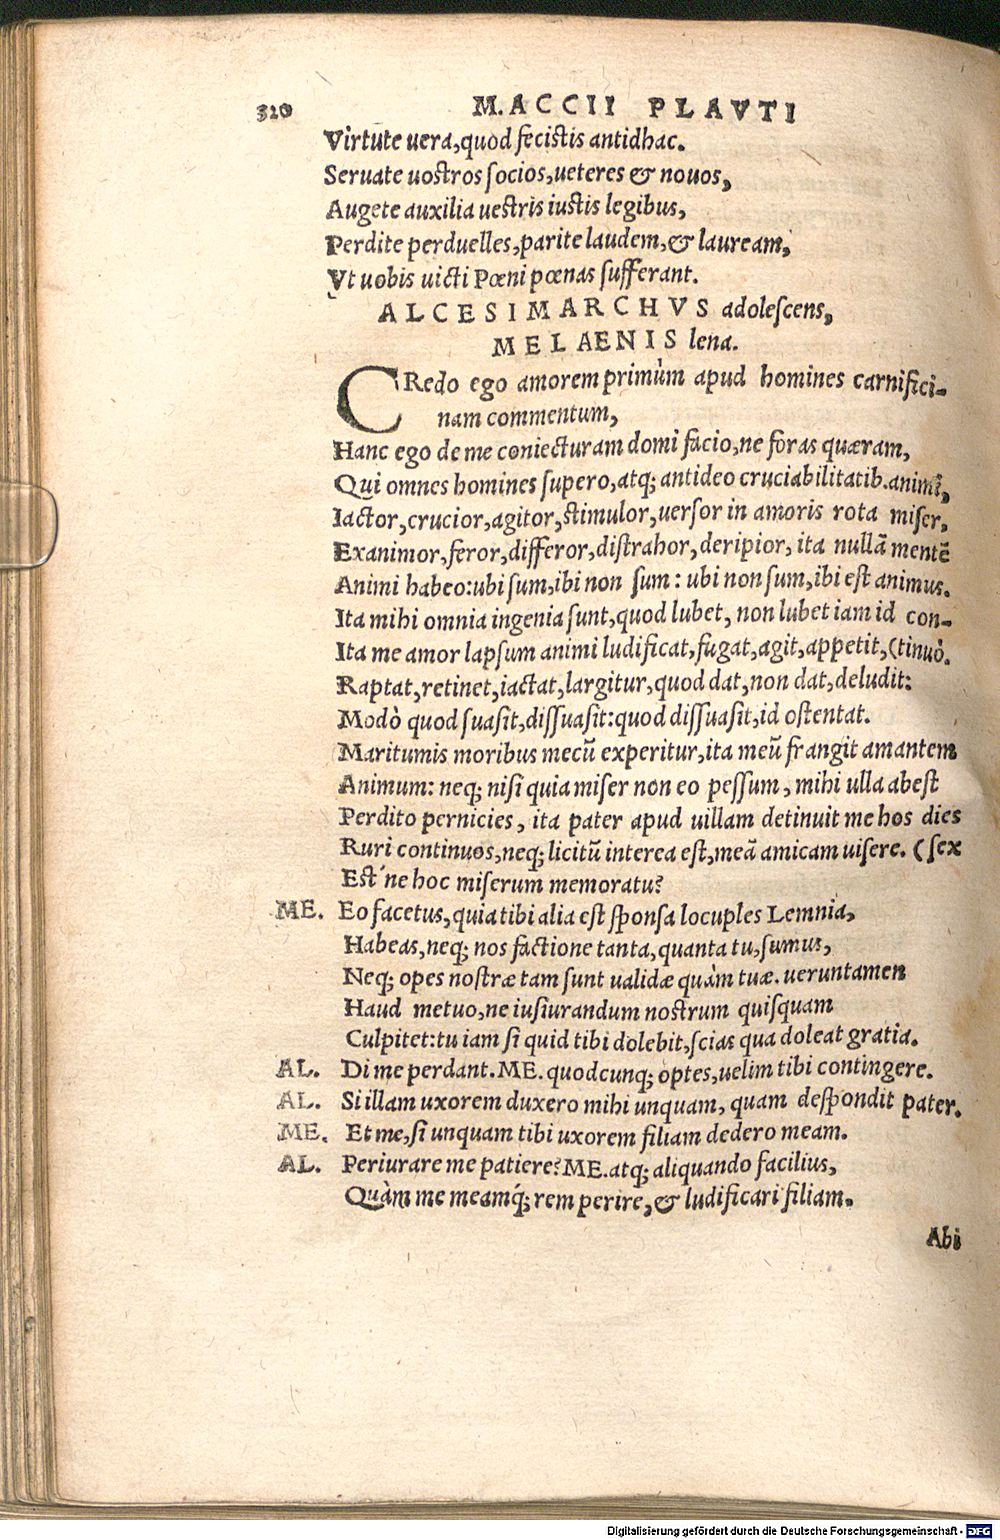 320 M. ACCII PLAVTI
Virtute uera, quod fecistis antidhac.
Seruate uostros socios, ueteres & nouos,
Augete auxilia uestris iustis legibus,
Perdite perduelles, parite laudem, & lauream,
Vt uobis uicti Pœni pœnas sufferant.
ALCESIMARCHVS adolescens,
MELAENIS lena.
CRedo ego amorem primùm apud homines carnifici-
nam commentum,
Hanc ego de me coniecturam domi facio, ne foras quæram,
Qui omnes homines supero, atq; antideo cruciabilitatib. animi,
Iactor, crucior, agitor, stimulor, uersor in amoris rota miser,
Exanimor, feror, differor, distrahor, deripior, ita nullã mentẽ
Animi habeo: ubi sum, ibi non sum: ubi non sum, ibi est animus.
Ita mihi omnia ingenia sunt, quod lubet, non lubet iam id con-
Ita me amor lapsum animi ludificat, fugat, agit, appetit, (tinuò.
Raptat, retinet, iactat, largitur, quod dat, non dat, deludit:
Modò quod suasit, dissuasit: quod dissuasit, id ostentat.
Maritumis moribus mecũ experitur, ita meũ frangit amantem
Animum: neq; nisi quia miser non eo pessum, mihi ulla abest
Perdito pernicies, ita pater apud uillam detinuit me hos dies
Ruri continuos, neq; licitũ interea est, meã amicam uisere. (sex
Est´ne hoc miserum memoratu?
ME. Eo facetus, quia tibi alia est sponsa locuples Lemnia,
Habeas, neq; nos factione tanta, quanta tu, sumus,
Neq; opes nostræ tam sunt validæ quàm tuæ. ueruntamen
Haud metuo, ne iusiurandum nostrum quisquam
Culpitet: tu iam si quid tibi dolebit, scias qua doleat gratia.
AL. Di me perdant. ME. quodcunq; optes, uelim tibi contingere.
AL. Si illam uxorem duxero mihi unquam, quam despondit pater.
ME. Et me, si unquam tibi uxorem filiam dedero meam.
AL. Periurare me patiere? ME. atq; aliquando facilius,
Quàm me meamq́; rem perire, & ludificari filiam.
Abi
Digitalisierung gefördert durch die Deutsche Forschungsgemeinschaft - DFG